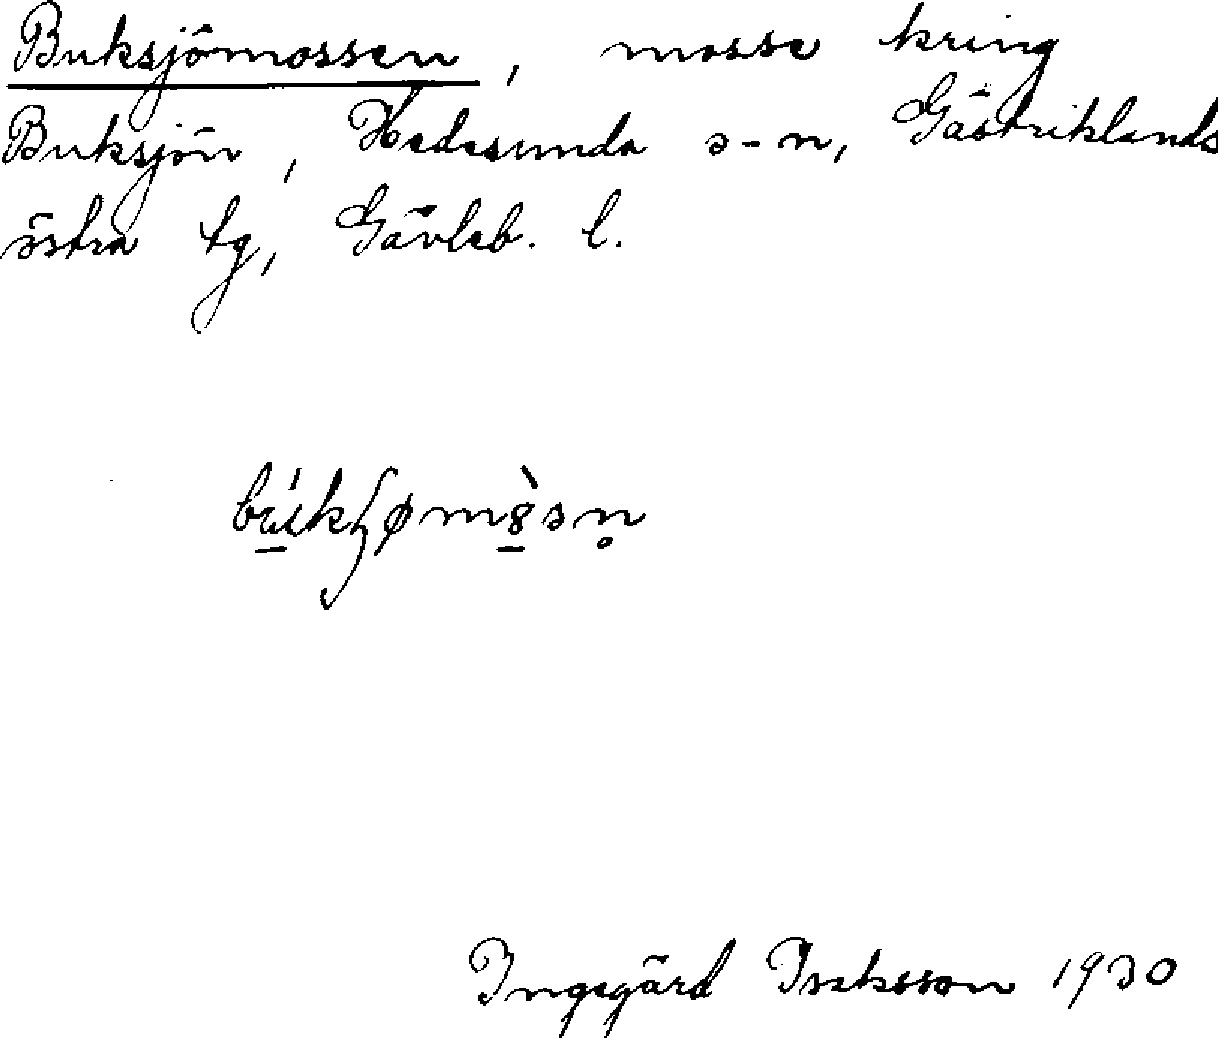 Buksjömossen, mosse kring
Buksjön, Hedesunda s-n, Gästriklands
östra tg, Gävleb. l.
Ingegärd Isaksson 1930